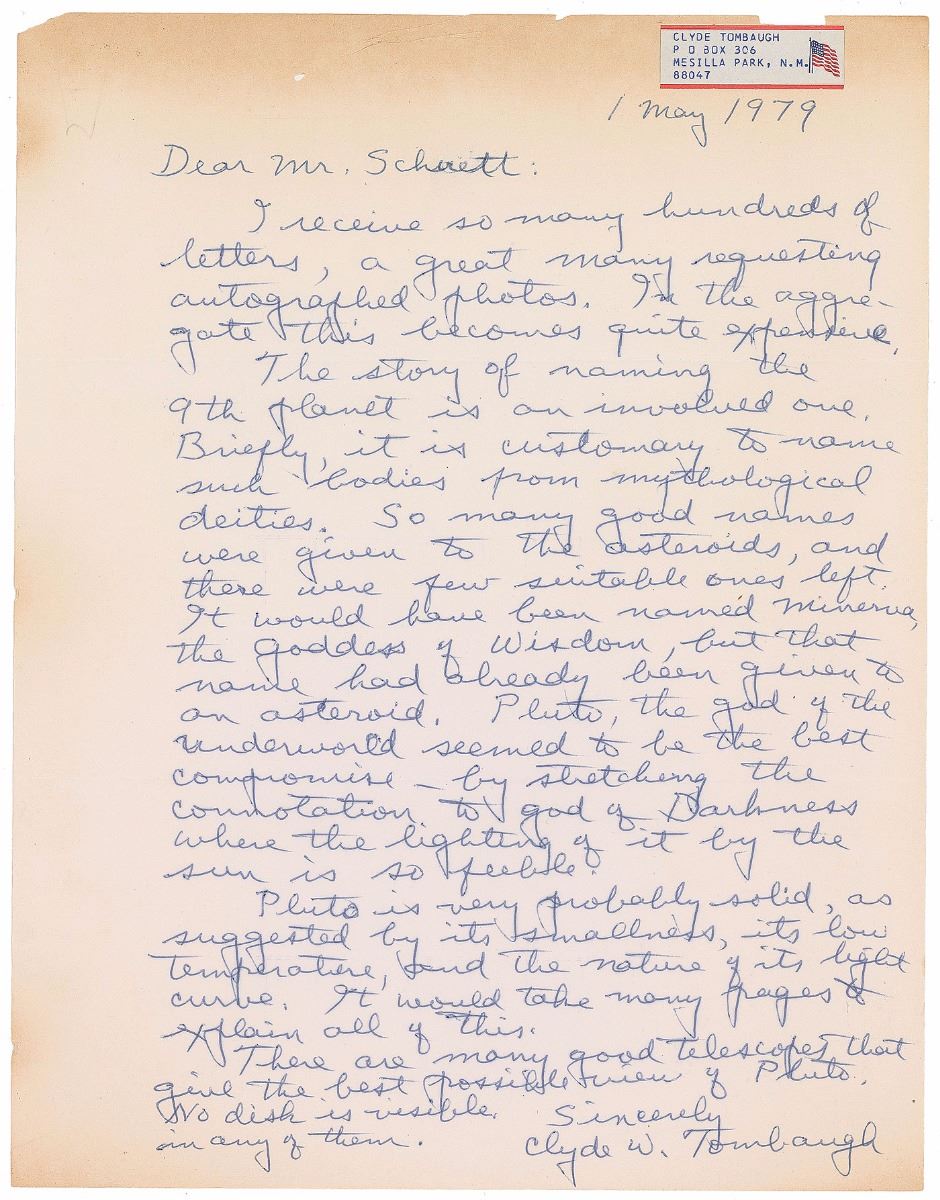 CLYDE TOMBAUGH
P O BOX 306
MESILLA PARK, N.M.
88047
1 May 1979
Dear Mr. Schuett:
I receive so many hundreds of
letters, a great many requesting
autographed photos. In the aggre-
gate this becomes quite expensive.
The story of naming the
9th planet is an involved one.
Briefly, it is customary to name
such bodies from mythological
deities. So many good names
were given to the asteroids, and
there were few suitable ones left.
It would have been named Minerva,
the Goddess of Wisdom, but that
name had already been given to
an asteroid. Pluto, the god of the
underworld seemed to be the best
compromise - by stretching the
connotation to god of Darkness
where the lighting of it by the
sun is so feeble.
Pluto is very probably solid, as
suggested by its smallness, its low
temperature, and the nature of its light
curve. It would take many pages to
explain all of this.
There are many good telescopes that
give the best possible view of Pluto.
No disk is visible
in any of them.
Sincerely
Clyde W. Tombaugh